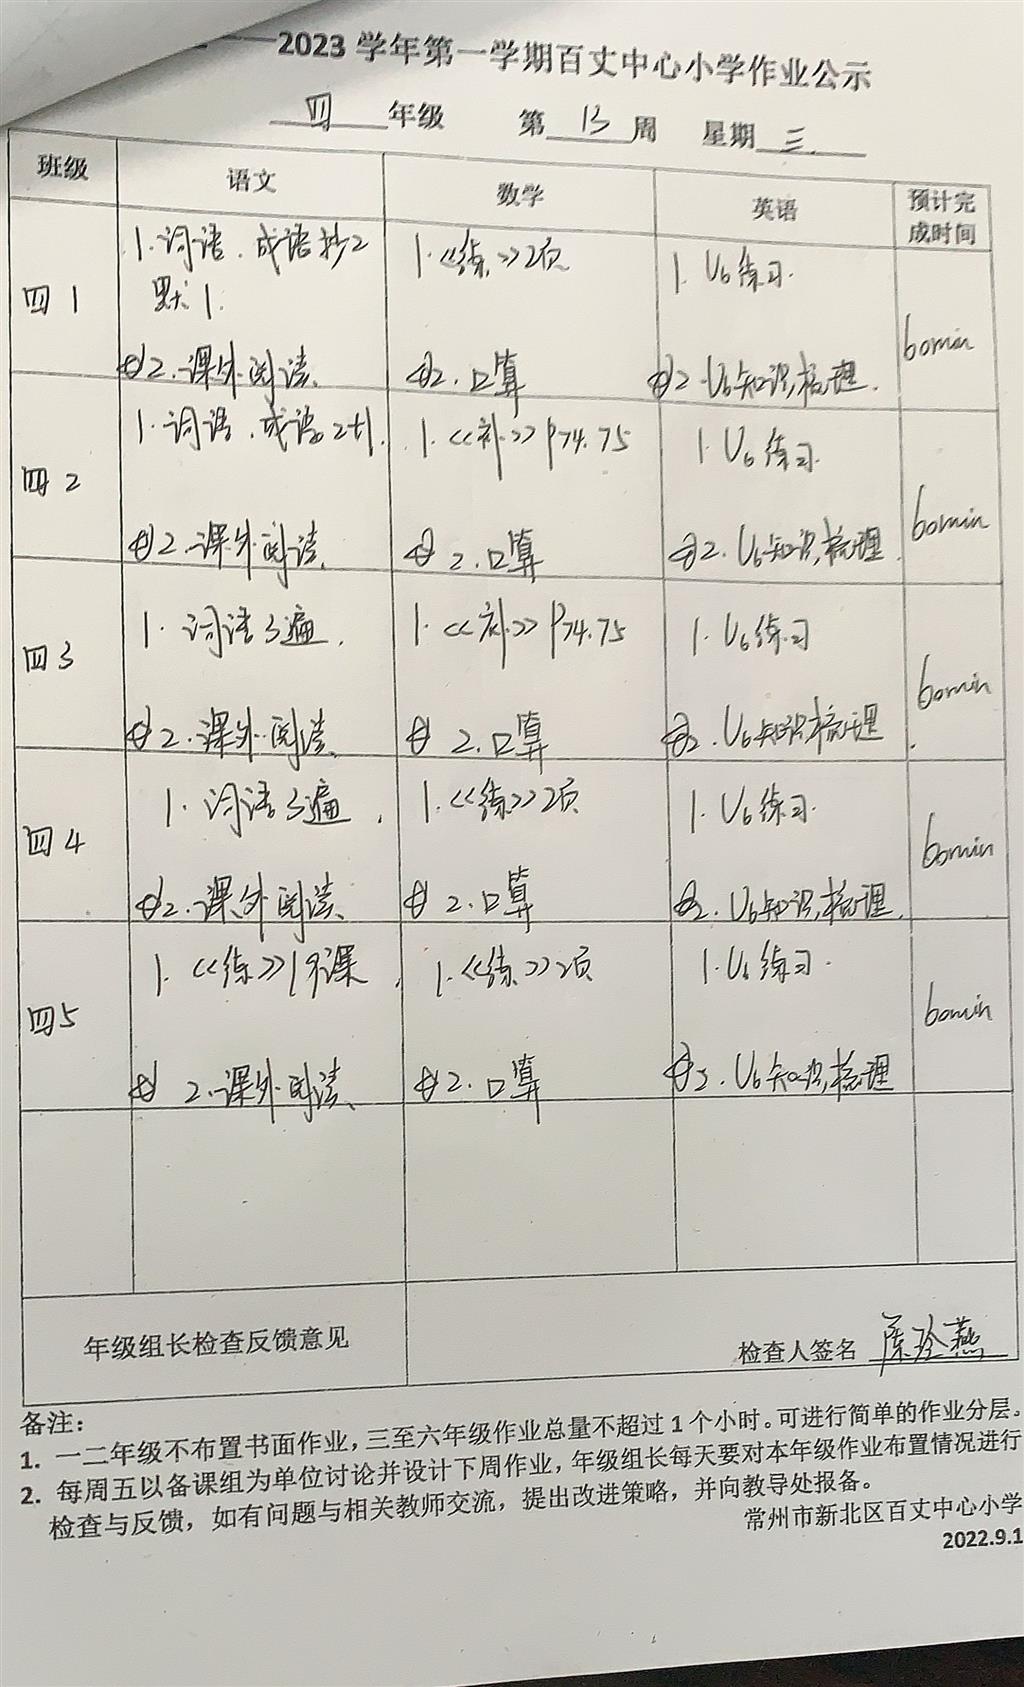 2023 学年第一学期百丈中心小学作业公示
四 年级 第 13 周 星期 三
班级 语文 数学 英语 预计完成时间
四1
1.词语.成语抄2
默1.
2.课外阅读.
1.《练》2页
2.口算
1.U6练习.
2.U6知识梳理.
60min
四2
1.词语.成语2+1.
2.课外阅读.
1.《补》P74.75
2.口算
1.U6练习.
2.U6知识梳理.
60min
四3
1.词语3遍.
2.课外阅读.
1.《补》P74.75
2.口算
1.U6练习
2.U6知识梳理.
60min
四4
1.词语3遍.
2.课外阅读.
1.《练》2页
2.口算
1.U6练习.
2.U6知识梳理.
60min
四5
1.《练》19课.
2.课外阅读.
1.《练》2页
2.口算
1.U6练习.
2.U6知识梳理
60min
年级组长检查反馈意见
检查人签名
备注:
1. 一二年级不布置书面作业，三至六年级作业总量不超过 1 个小时。可进行简单的作业分层。
2. 每周五以备课组为单位讨论并设计下周作业，年级组长每天要对本年级作业布置情况进行
检查与反馈，如有问题与相关教师交流，提出改进策略，并向教导处报备。
常州市新北区百丈中心小学
2022.9.1